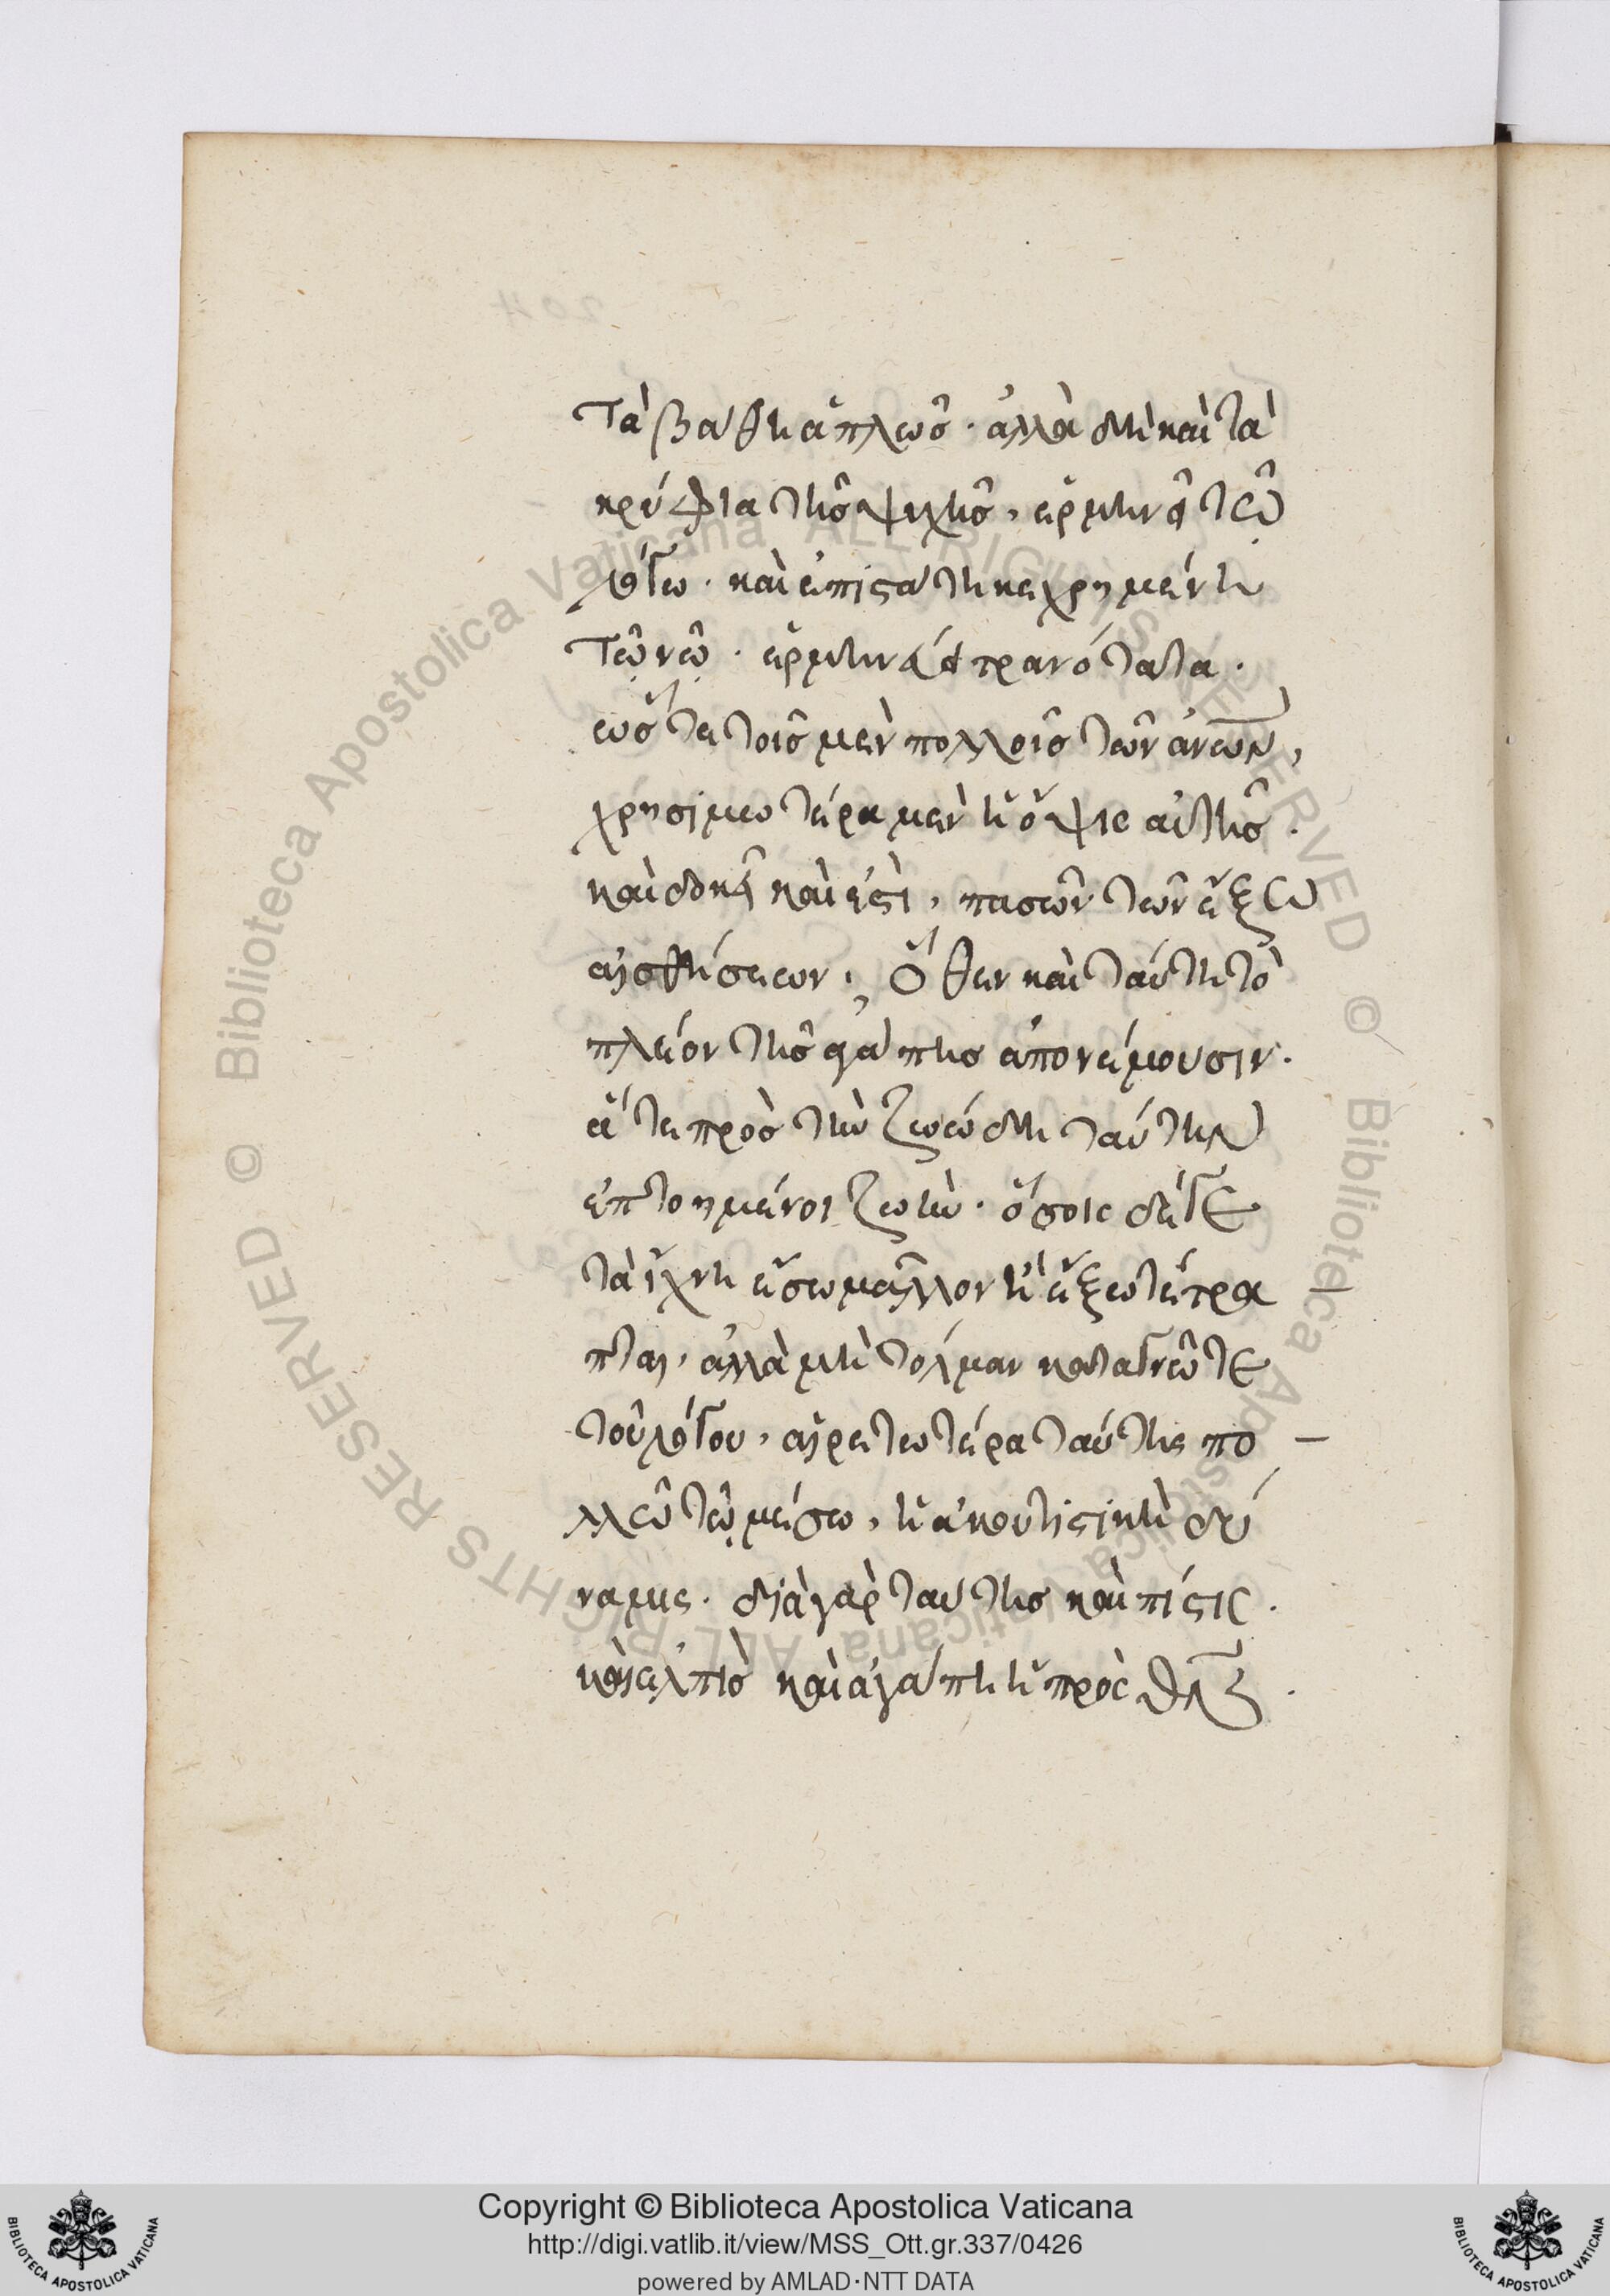 τὰ βάθη ἁπλῶς · ἀλλὰ δὴ καὶ τὰ
κρύφια τῆς ψυχῆς, ἑρμηνεῖ τῶ
λόγω · καὶ ἐπιστάτη κεχρημένη
τῶ νῶ · ἑρμηνεία τρανότατα ·
ὥστε τοῖς μὲν πολλοῖς τῶν ἀνων̅,
χρησιμωτέρα μὲν ἡ ὄψις αὐτῆς ·
καὶ δοκεῖ καὶ ἐστὶ, πασῶν τῶν ἔξω
αἰσθήσεων · ὅθεν καὶ ταύτη τὸ
πλέον τῆς ἀγάπης ἀπονέμουσιν ·
ἅτε πρὸς τὴν ζωώδη ταύτην
ἐπτοημένοι ζωὴν · ὅσοις δέ γε
τὰ ἴχνη εἴσω μᾶλλον ἢ ἔξω τέτρα
πται, ἀλλὰ μὴ τόλμαν καταγνῶτε
τοῦ λόγου, αἱρετωτέρα ταύτης πο-
λλῶ τῶ μέσω, ἡ ἀκουτιστικὴ δύ
ναμις · διὰ γὰρ ταύτης καὶ πίστις ·
καὶ ἐλπὶς καὶ ἀγάπη ἡ πρὸς θν̅ ·
Copyright © Biblioteca Apostolica Vaticana
http://digi.vatlib.it/view/MSS_Ott.gr.337/0426
powered by AMLAD·NTT DATA